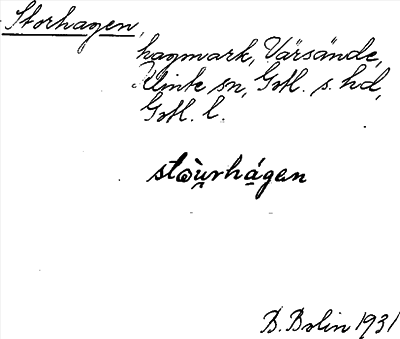 Storhagen,
hagmark, Värsände,
Klinte sn, Gotl. s. hd,
Gotl. l.
stoùrhágen
B. Bolin 1931